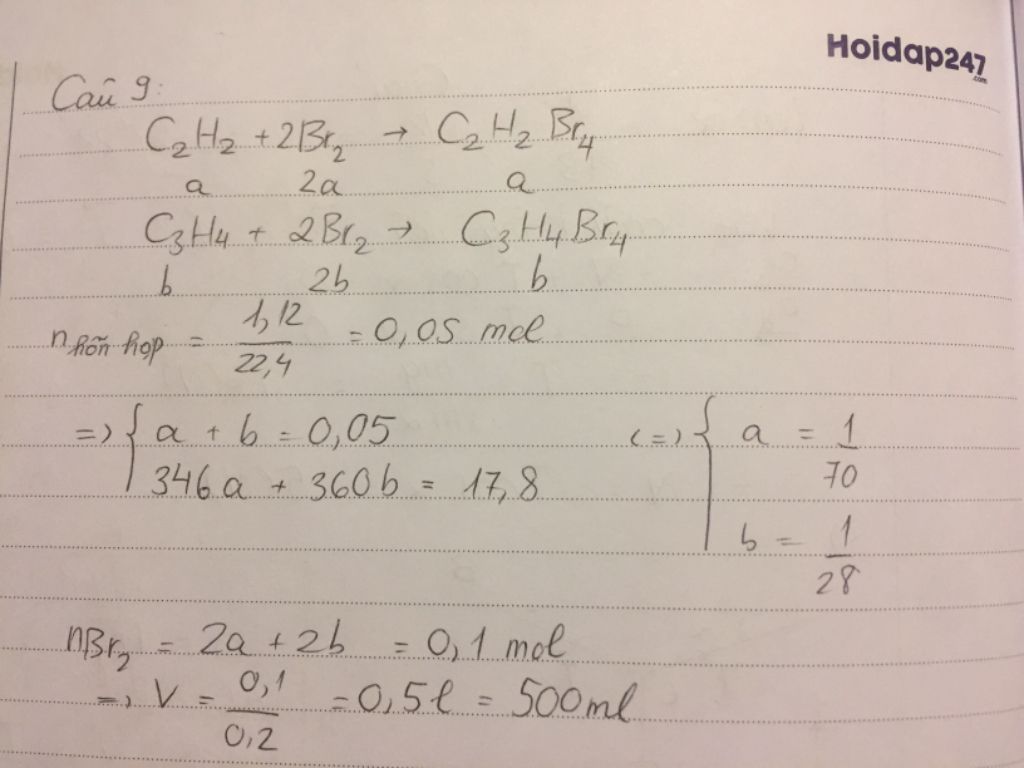 Hoidap247
.com
Câu 9:
C₂H₂ + 2Br₂ → C₂H₂Br₄
a 2a a
C₃H₄ + 2Br₂ → C₃H₄Br₄
b 2b b
n hỗn hợp = 1,12/22,4 = 0,05 mol
=> { a + b = 0,05 (=) { a = 1/70
346a + 360b = 17,8 b = 1/28
nBr₂ = 2a + 2b = 0,1 mol
=> V = 0,1/0,2 = 0,5l = 500ml